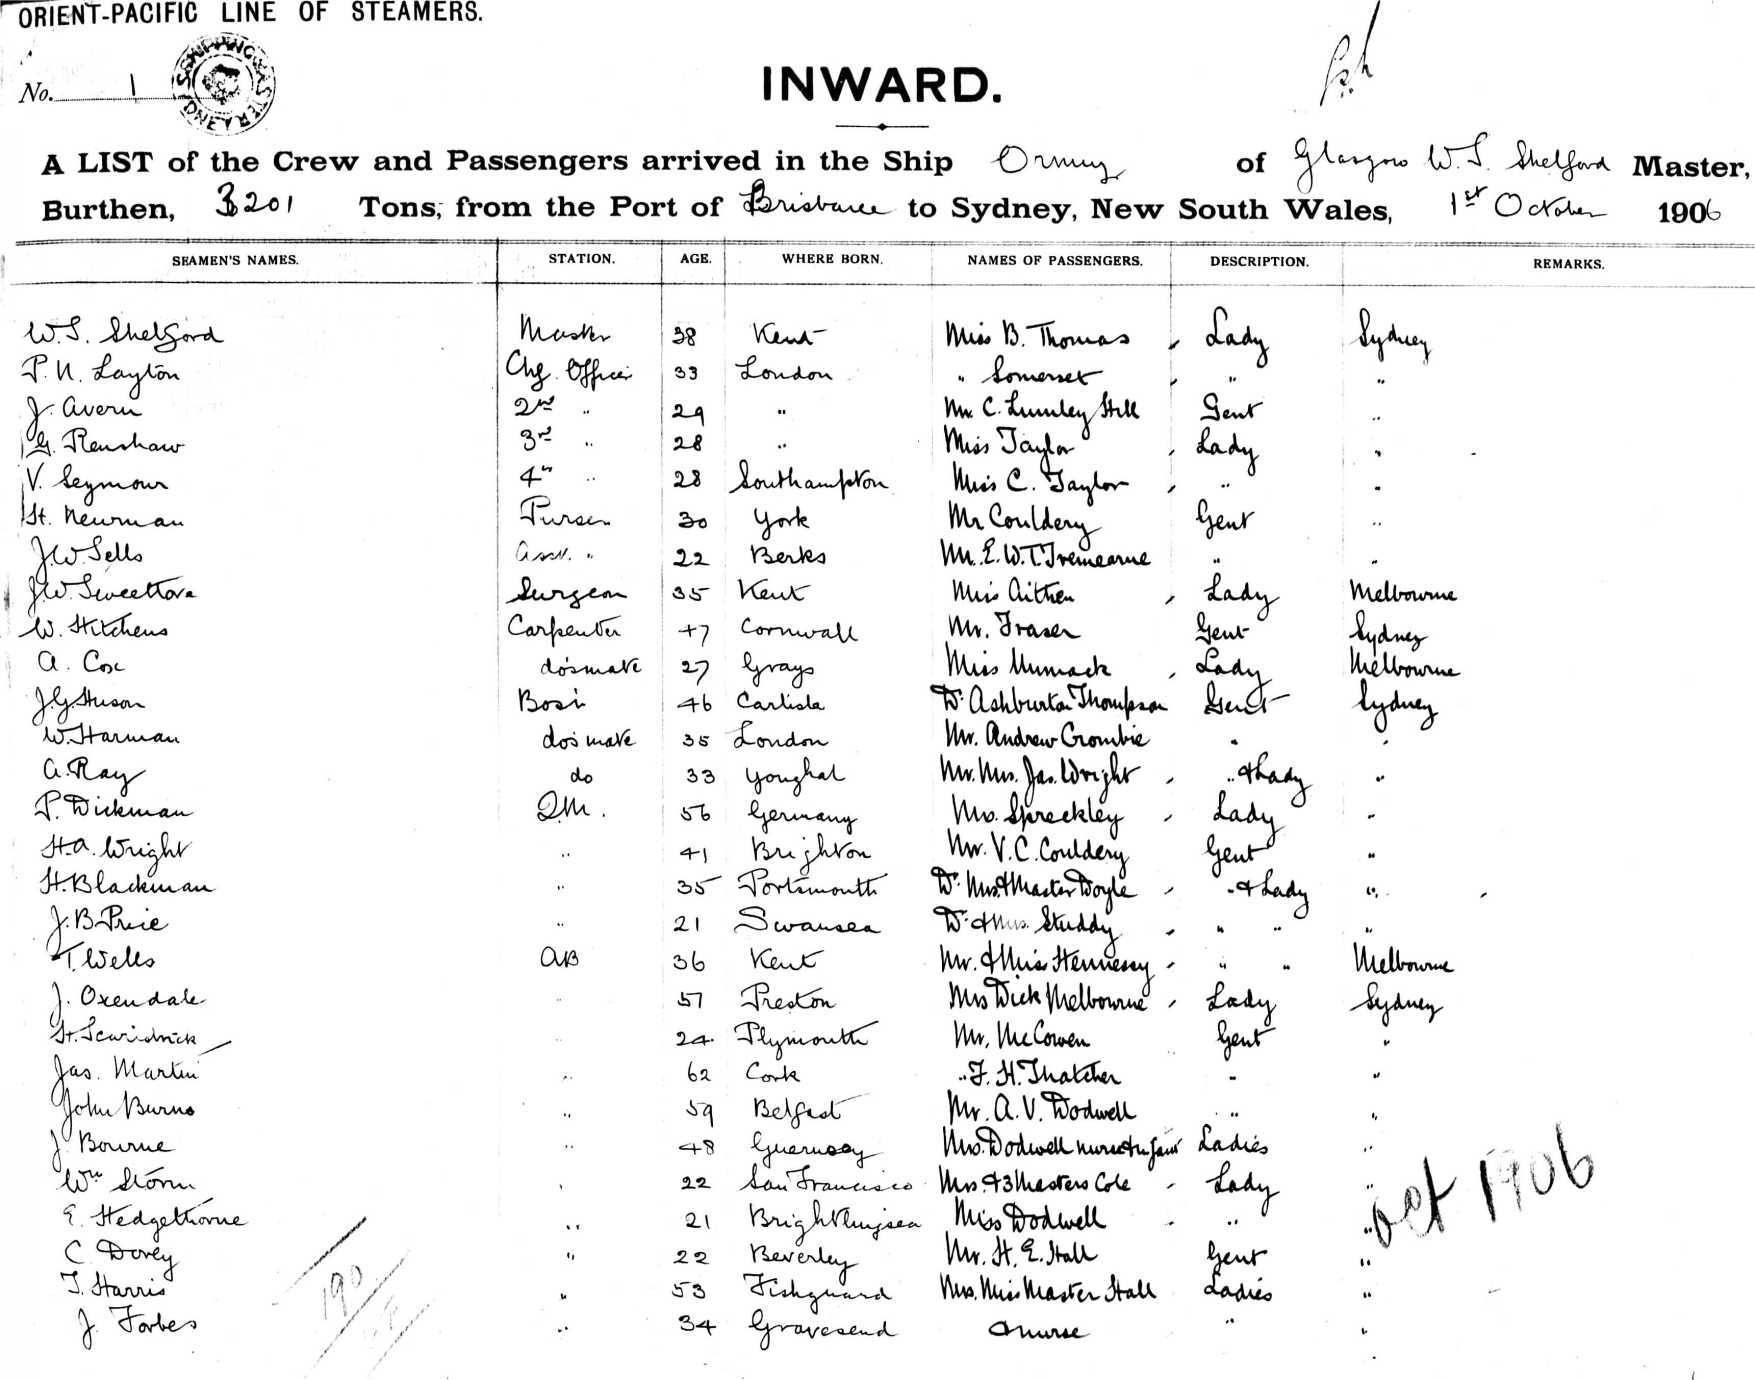 ORIENT-PACIFIC LINE OF STEAMERS.
No. 1
INWARD.
A LIST of the Crew and Passengers arrived in the Ship Ormuz of Glasgow W. S. Shelford Master,
Burthen, 3201 Tons, from the Port of Brisbane to Sydney, New South Wales, 1st October 1906
SEAMEN'S NAMES. STATION. AGE. WHERE BORN. NAMES OF PASSENGERS. DESCRIPTION. REMARKS.
W. S. Shelford Master 38 Kent Miss B. Thomas Lady Sydney
P. N. Layton Chf. Officer 33 London " Somerset " "
J. Avern 2nd " 29 " Mr. C. Lumley Hill Gent "
G. Renshaw 3rd " 28 " Miss Taylor Lady "
V. Seymour 4th " 28 Southampton Miss C. Taylor " "
H. Newman Purser 30 York Mr Couldery Gent "
J. W. Sells Asst. " 22 Berks Mr. E. W. T. Tremearne " "
J. W. Surgeon 35 Kent Miss Aitken Lady Melbourne
W. Hitchens Carpenter 47 Cornwall Mr. Fraser Gent Sydney
A. Cox do's mate 27 Grays Miss Lady Melbourne
J. G. Huson Bosn 46 Carlisle Dr. Ashburton Thompson Gent Sydney
W. Harman do's mate 35 London Mr. Andrew Crombie " "
A. Ray do 33 Youghal Mr. Mrs. Jas. Wright " & Lady "
P. Dickman Q.M. 56 Germany Mrs. Spreckley Lady "
H. A. Wright " 41 Brighton Mr. V. C. Couldery Gent "
H. Blackman " 35 Portsmouth Dr. Mrs. & Master Doyle " & Lady "
J. B. Price " 21 Swansea Dr. & Mrs. Studdy " " "
T. Wells AB 36 Kent Mr. & Miss Hennessy " " Melbourne
J. Oxendale " 57 Preston Mrs Dick Melbourne Lady Sydney
H. 24 Plymouth Mr. McCowen Gent "
Jas. Martin " 62 Cork " F. H. Thatcher " "
John Burns " 59 Belfast Mr. A. V. Dodwell " "
J. Bourne " 48 Guernsey Mrs. Dodwell nurse & infant Ladies "
Wm Storm " 22 San Francisco Mrs. & 3 Masters Cole Lady "
E. Hedgethorne " 21 Brightlingsea Miss Dodwell " "
C Dovey " 22 Beverley Mr. H. E. Hall Gent "
T. Harris " 53 Fishguard Mrs. Miss Master Hall Ladies "
J. Forbes " 34 Gravesend & nurse " "
Oct 1906
190